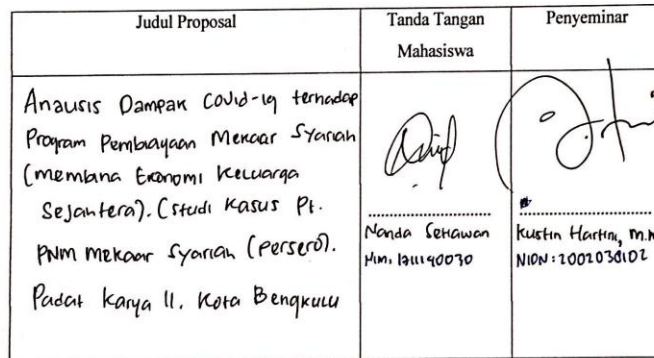 Judul Proposal
Tanda Tangan
Mahasiswa
Penyeminar
Anausis Dampak Covid-19 terhadap
Program Pembiayaan Mekaar Syariah
(membina Ekonomi Keluarga
Sejahtera). (Studi Kasus Pt.
PNM Mekaar Syariah (Persero).
Padat Karya II. Kota Bengkulu
Nanda Setiawan
Nim: 1711140030
Kustin Hartini, M.M
NIDN: 2002030102